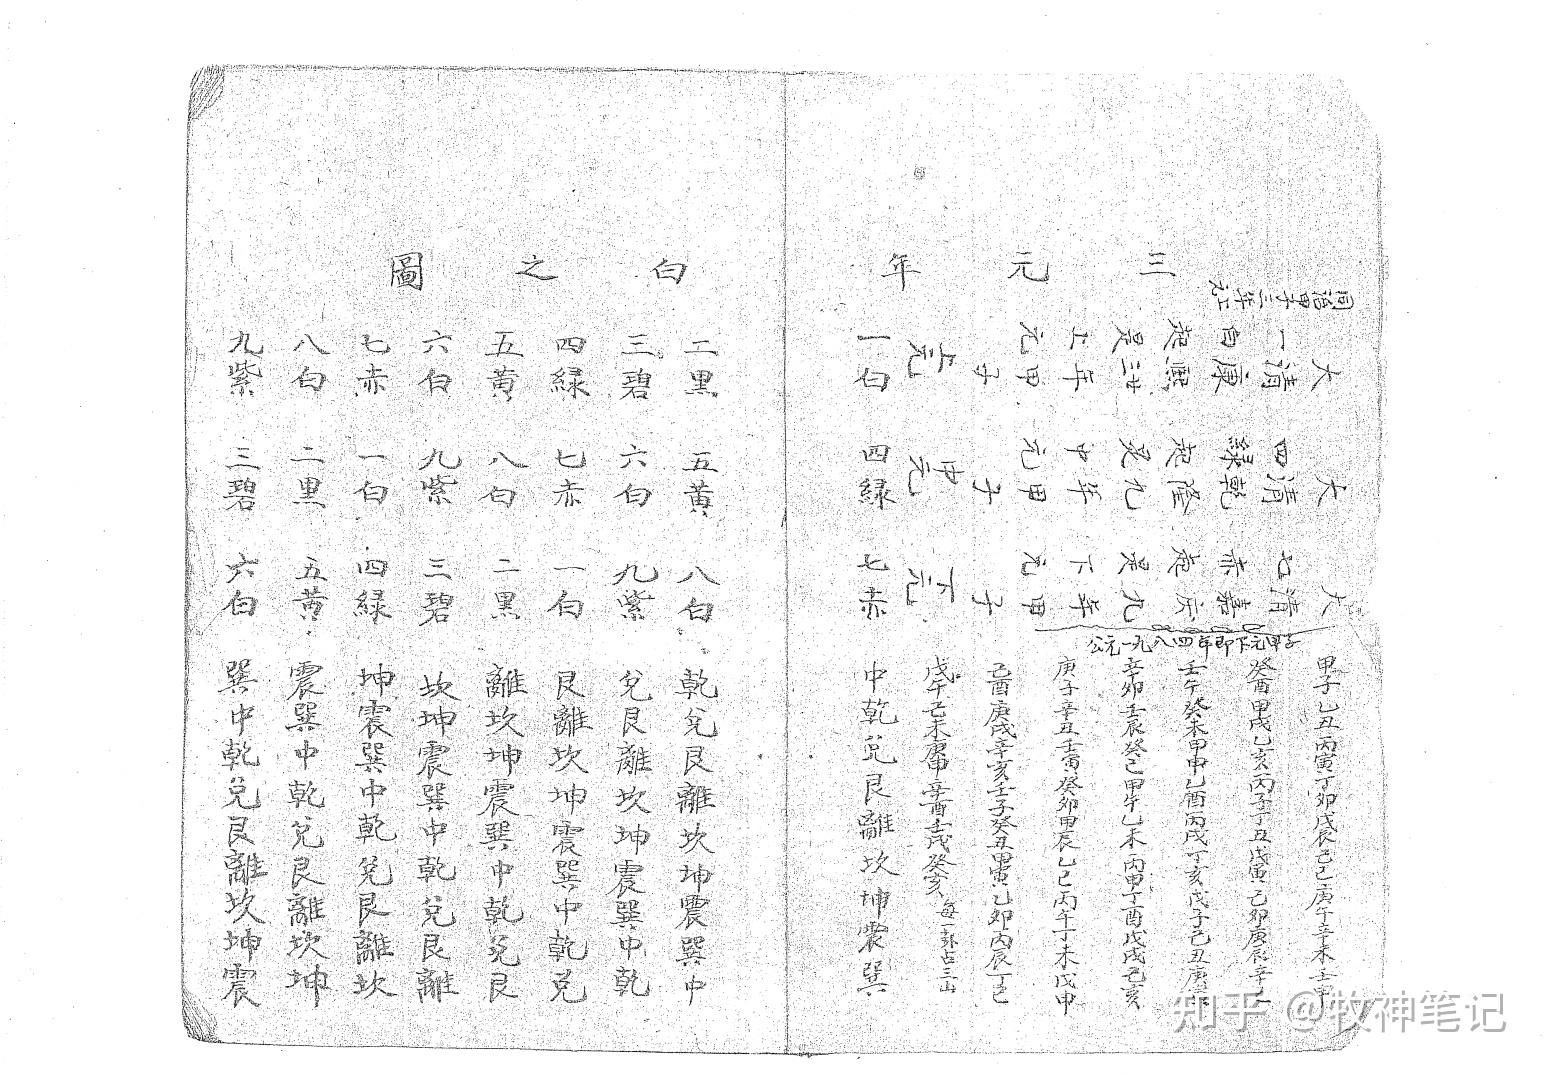 三元年白之圖
同治甲子三年上元
一白起是上元
大清康熙廿三年甲子
四綠起是中元
大清乾隆九年甲子
七赤起是下元
大清嘉庆九年甲子
公元一九八四年即下元甲子
甲子乙丑丙寅丁卯戊辰己巳庚午辛未壬申
癸酉甲戌乙亥丙子丁丑戊寅己卯庚辰辛巳
壬午癸未甲申乙酉丙戌丁亥戊子己丑庚寅
辛卯壬辰癸巳甲午乙未丙申丁酉戊戌己亥
庚子辛丑壬寅癸卯甲辰乙巳丙午丁未戊申
己酉庚戌辛亥壬子癸丑甲寅乙卯丙辰丁巳
上元 中元 下元 戊午己未庚申辛酉壬戌癸亥 每一卦占三山
一白 四緑 七赤 中乾兌艮離坎坤震巽
二黑 五黄 八白 乾兌艮離坎坤震巽中
三碧 六白 九紫 兌艮離坎坤震巽中乾
四緑 七赤 一白 艮離坎坤震巽中乾兌
五黄 八白 二黑 離坎坤震巽中乾兌艮
六白 九紫 三碧 坎坤震巽中乾兌艮離
七赤 一白 四緑 坤震巽中乾兌艮離坎
八白 二黑 五黄 震巽中乾兌艮離坎坤
九紫 三碧 六白 巽中乾兌艮離坎坤震
知乎 @牧神笔记